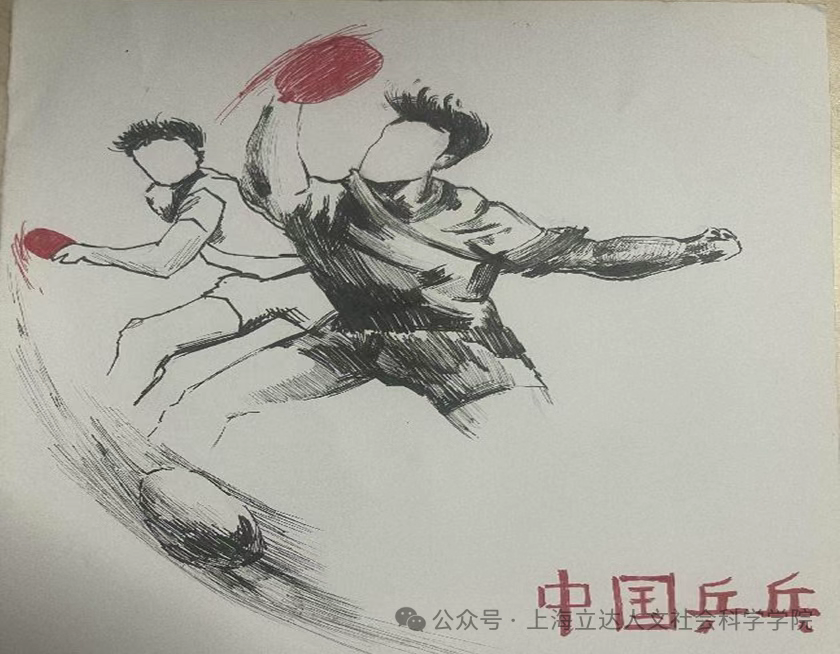 中国乒乓
公众号·上海立达人文社会科学学院